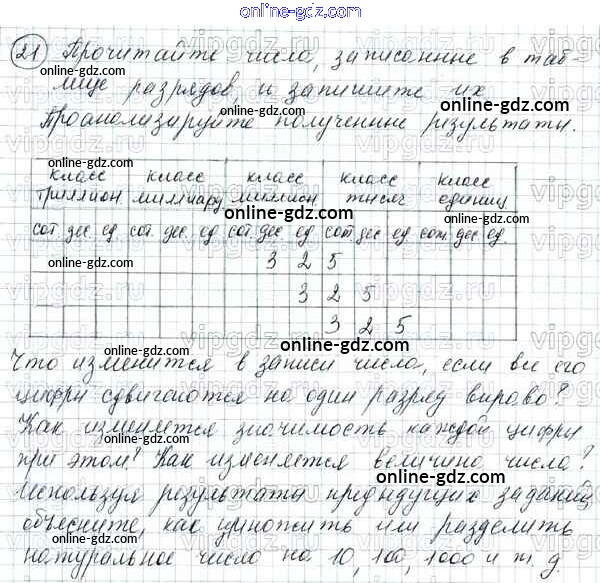 online-gdz.com
21 Прочитайте числа, записанные в таб-
лице разрядов и запишите их
Проанализируйте полученные результаты.
класс триллион класс миллиард класс миллион класс тысяч класс единиц
сот. дес. ед. сот. дес. ед. сот. дес. ед. сот. дес. ед. сот. дес. ед.
3 2 5
3 2 5
3 2 5
Что изменится в записи числа, если все его
цифры сдвигаются на один разряд вправо?
Как изменяется значимость каждой цифры
при этом? Как изменяется величина числа?
Используя результаты предыдущих заданий
объясните, как умножить или разделить
натуральное число на 10, 100, 1000 и т. д.